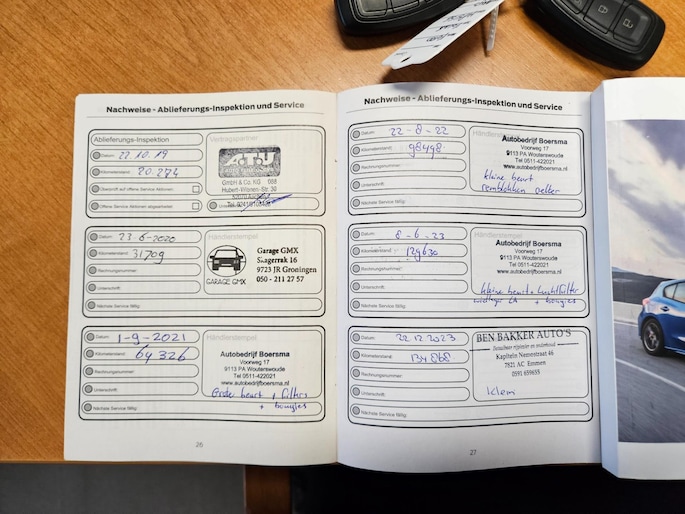 Nachweise - Ablieferungs-Inspektion und Service
Ablieferungs-Inspektion
Vertragspartner
Datum: 22.10.19
Kilometerstand: 20.274
A.T.U
GmbH & Co. KG 068
Überprüft auf offene Service Aktionen:
Offene Service Aktionen abgearbeitet:
Händlerstempel
Datum: 23.6-2020
Kilometerstand: 31709
Rechnungsnummer:
Unterschrift:
Nächste Service fällig:
GARAGE GMX
Garage GMX
Skagerrak 16
9723 JR Groningen
050 - 211 27 57
Händlerstempel
Datum: 1-9-2021
Kilometerstand: 64326
Rechnungsnummer:
Unterschrift:
Nächste Service fällig:
Autobedrijf Boersma
Voorweg 17
9113 PA Wouterswoude
Tel 0511-422021
www.autobedrijfboersma.nl
Grote beurt + filters
+ bougies
26
Nachweise - Ablieferungs-Inspektion und Service
Händlerstempel
Datum: 22-8-22
Kilometerstand: 98498
Rechnungsnummer:
Unterschrift:
Nächste Service fällig:
Autobedrijf Boersma
Voorweg 17
9113 PA Wouterswoude
Tel 0511-422021
www.autobedrijfboersma.nl
kleine beurt
remblokken
Händlerstempel
Datum: 8-6-23
Kilometerstand: 129630
Rechnungsnummer:
Unterschrift:
Nächste Service fällig:
Autobedrijf Boersma
Voorweg 17
9113 PA Wouterswoude
Tel 0511-422021
www.autobedrijfboersma.nl
kleine beurt + luchtfilter
+ bougies
Datum: 22.12.2023
Kilometerstand: 134868
Rechnungsnummer:
Unterschrift:
Nächste Service fällig:
BEN BAKKER AUTO'S
Kapitein Nemostraat 46
7821 AC Emmen
0591 659655
Klem
27